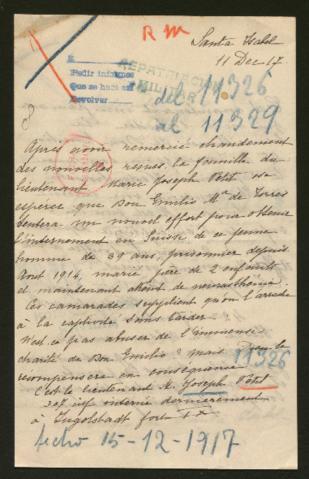 R M
Santa Isabel
11 Dec 17.
A
Pedir informes
Que se hace así
Devolver
REPATRIACIÓN
MILITAR
del 11326
al 11329
8
Après avoir remercié chaudement
des nouvelles reçues la famille du
lieutenant Marie Joseph Pétot ose
espérer que Don Emilio Mª de Torres
tentera un nouvel effort pour obtenir
l'internement en Suisse de ce jeune
homme de 39 ans, prisonnier depuis
Aout 1914, marié père de 2 enfants
et maintenant atteint de neurasthénie.
Ces camarades supplient qu'on l'arrache
à la captivité sans tarder.
N'est ce pas abuser de l'immense
charité de Don Emilio? mais Dieu le
11326
récompensera en conséquence
C'est le lieutenant M. Joseph Pétot
inf interné dernièrement
à Ingolstadt fort
fecho 15-12-1917